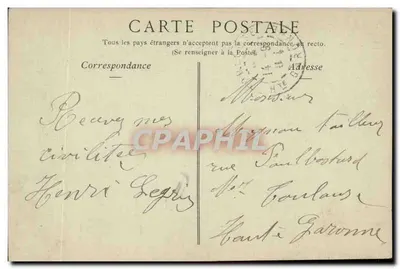 CARTE POSTALE
Tous les pays étrangers n'acceptent pas la correspondance au recto.
(Se renseigner à la Poste)
Correspondance
Adresse
Recevez mes
civilités
Henri
Monsieur
tailleur
rue
Toulouse
Haute Garonne
CPAPHIL